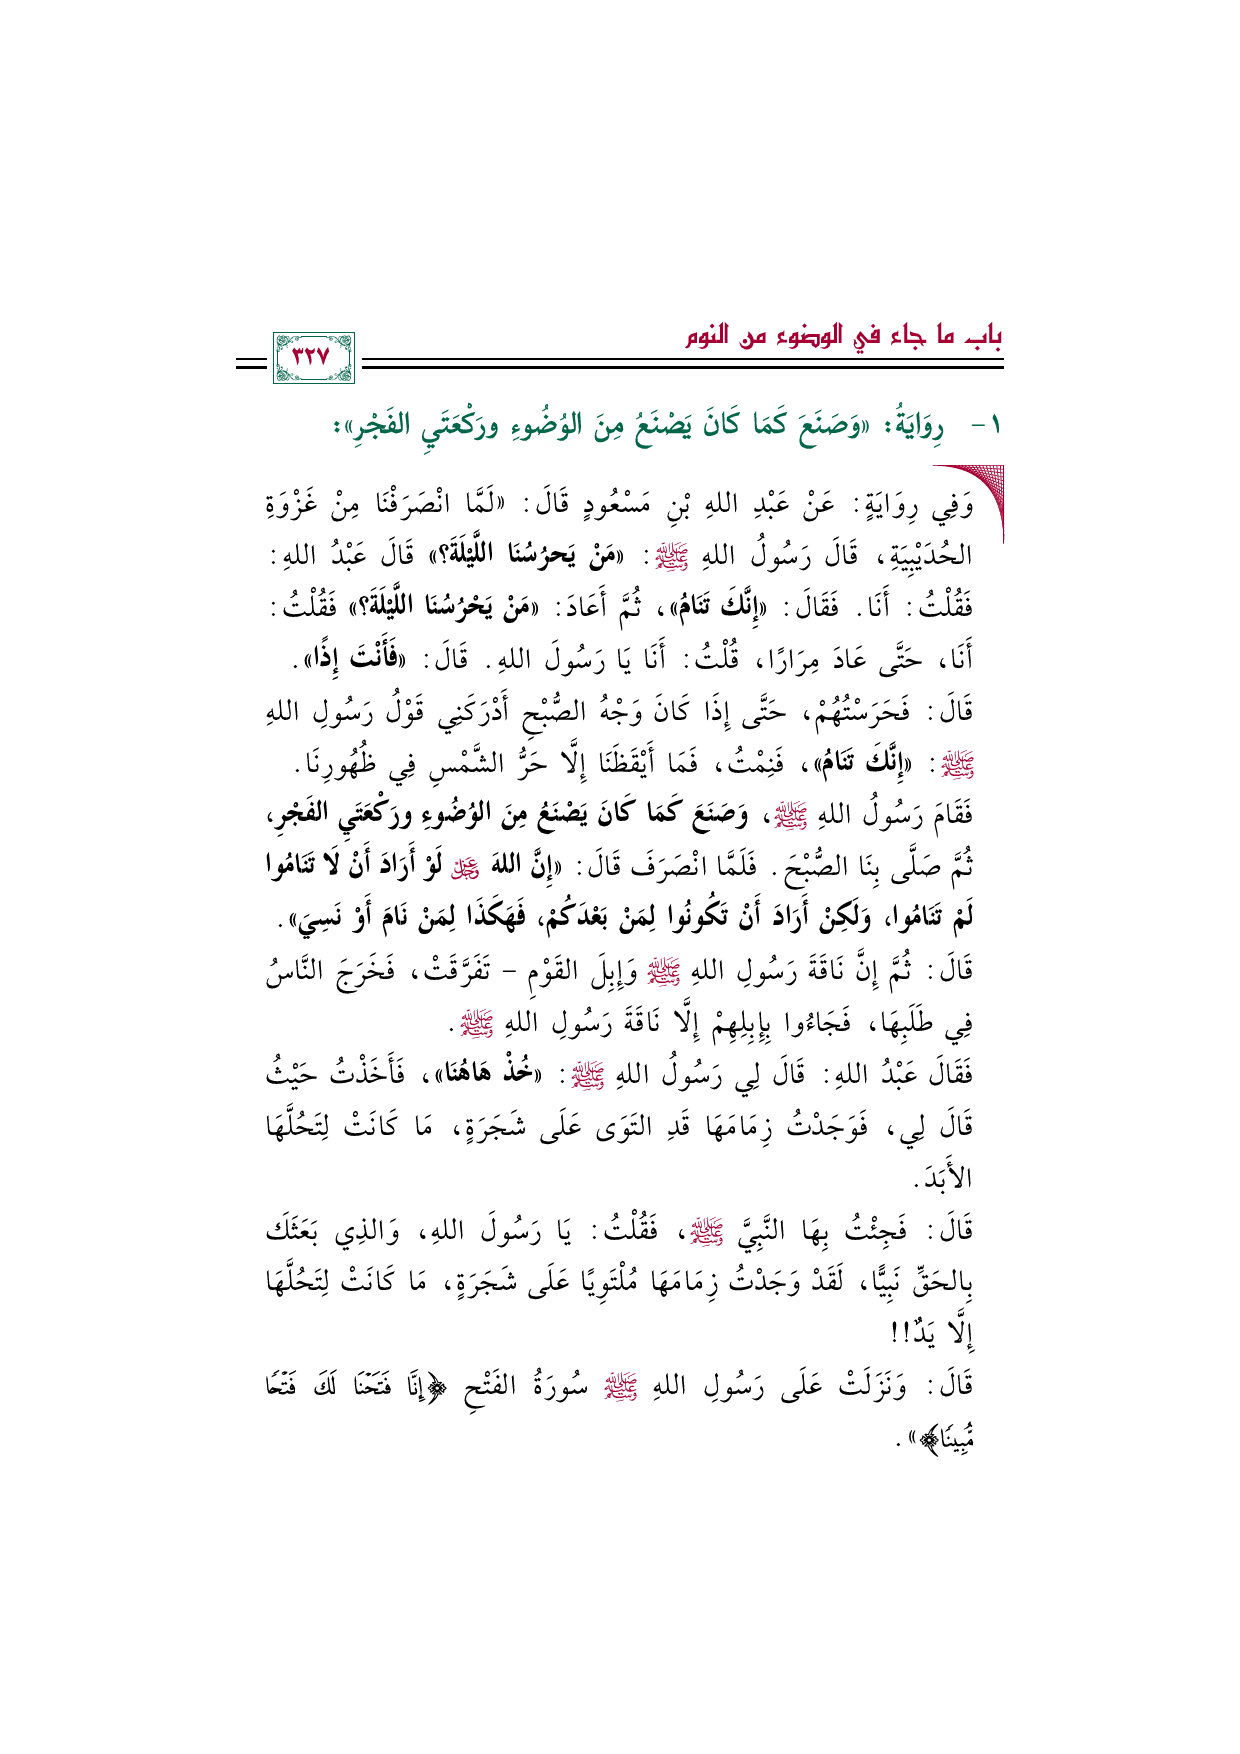 باب ما جاء في الوضوء من النوم
٣٢٧
١- رِوَايَةُ: «وَصَنَعَ كَمَا كَانَ يَصْنَعُ مِنَ الوُضُوءِ ورَكْعَتَيِ الفَجْرِ»:
وَفِي رِوَايَةٍ: عَنْ عَبْدِ اللهِ بْنِ مَسْعُودٍ قَالَ: «لَمَّا انْصَرَفْنَا مِنْ غَزْوَةِ
الحُدَيْبِيَةِ، قَالَ رَسُولُ اللهِ ﷺ: «مَنْ يَحرُسُنَا اللَّيْلَةَ؟» قَالَ عَبْدُ اللهِ:
فَقُلْتُ: أَنَا. فَقَالَ: «إِنَّكَ تَنَامُ»، ثُمَّ أَعَادَ: «مَنْ يَحْرُسُنَا اللَّيْلَةَ؟» فَقُلْتُ:
أَنَا، حَتَّى عَادَ مِرَارًا، قُلْتُ: أَنَا يَا رَسُولَ اللهِ. قَالَ: «فَأَنْتَ إِذًا».
قَالَ: فَحَرَسْتُهُمْ، حَتَّى إِذَا كَانَ وَجْهُ الصُّبْحِ أَدْرَكَنِي قَوْلُ رَسُولِ اللهِ
ﷺ: «إِنَّكَ تَنَامُ»، فَنِمْتُ، فَمَا أَيْقَظَنَا إِلَّا حَرُّ الشَّمْسِ فِي ظُهُورِنَا.
فَقَامَ رَسُولُ اللهِ ﷺ، وَصَنَعَ كَمَا كَانَ يَصْنَعُ مِنَ الوُضُوءِ ورَكْعَتَيِ الفَجْرِ،
ثُمَّ صَلَّى بِنَا الصُّبْحَ. فَلَمَّا انْصَرَفَ قَالَ: «إِنَّ اللهَ عزوجل لَوْ أَرَادَ أَنْ لَا تَنَامُوا
لَمْ تَنَامُوا، وَلَكِنْ أَرَادَ أَنْ تَكُونُوا لِمَنْ بَعْدَكُمْ، فَهَكَذَا لِمَنْ نَامَ أَوْ نَسِيَ».
قَالَ: ثُمَّ إِنَّ نَاقَةَ رَسُولِ اللهِ ﷺ وَإِبِلَ القَوْمِ - تَفَرَّقَتْ، فَخَرَجَ النَّاسُ
فِي طَلَبِهَا، فَجَاءُوا بِإِبِلِهِمْ إِلَّا نَاقَةَ رَسُولِ اللهِ ﷺ.
فَقَالَ عَبْدُ اللهِ: قَالَ لِي رَسُولُ اللهِ ﷺ: «خُذْ هَاهُنَا»، فَأَخَذْتُ حَيْثُ
قَالَ لِي، فَوَجَدْتُ زِمَامَهَا قَدِ التَوَى عَلَى شَجَرَةٍ، مَا كَانَتْ لِتَحُلَّهَا
الأَبَدَ.
قَالَ: فَجِئْتُ بِهَا النَّبِيَّ ﷺ، فَقُلْتُ: يَا رَسُولَ اللهِ، وَالذِي بَعَثَكَ
بِالحَقِّ نَبِيًّا، لَقَدْ وَجَدْتُ زِمَامَهَا مُلْتَوِيًا عَلَى شَجَرَةٍ، مَا كَانَتْ لِتَحُلَّهَا
إِلَّا يَدٌ!!
قَالَ: وَنَزَلَتْ عَلَى رَسُولِ اللهِ ﷺ سُورَةُ الفَتْحِ ﴿إِنَّا فَتَحْنَا لَكَ فَتْحًا
مُّبِينًا﴾».